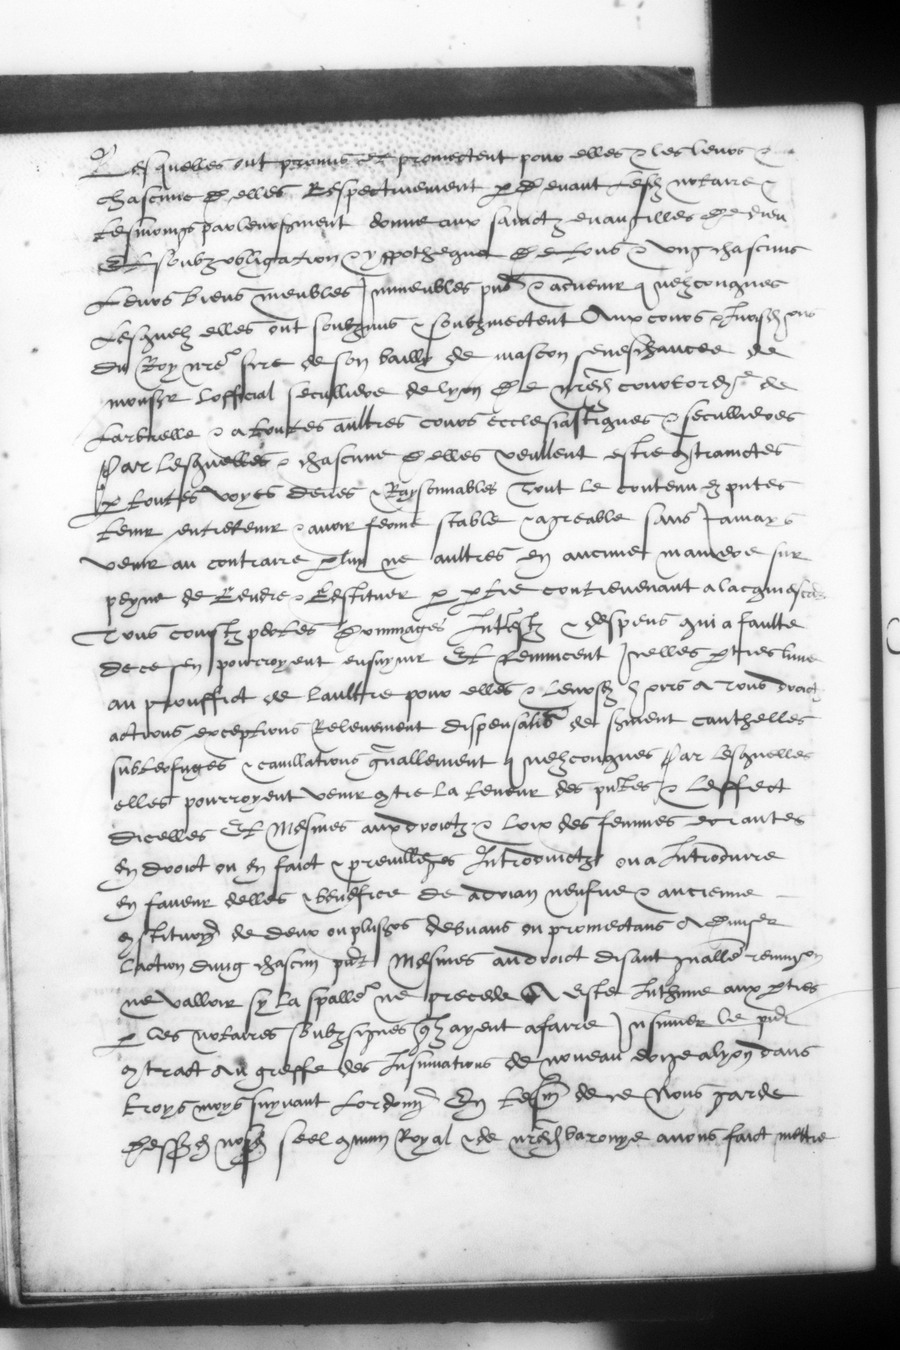 Lesquelles ont promis et promectent pour elles & les leurs &
chascune d elles Respectivement p d evant lesd notaire &
tesmoings par leur serment donne aux sainctz evangilles de dieu
Et soubz obligation & yppotheque de tous & ung chascuns
Leurs biens meubles Inmeubles pns & advenir quelzconques
Lesquelz elles ont soubzmis & soubzmectent Aux cours
du Roy nre sire de son bailly de mascon seneschaucee de
monsr Lofficial seculliere de lyon de nred court ord de
Larbrelle & a toutes aultres cours ecclesiastiques & secullieres
Par Lesquelles & chascune d elles veullent estre contrainctes
p toutes voyes deues & Raysonnables Tout le contenu es pntes
tenir entretenir & avoir ferme stable & agreable sans Jamays
venir au contraire ne aultres en aucune maniere sur
peyne de Rendre & Restituer p ptie contrevenant a lacquiescente
Tous coustz pertes Dommages Interestz & despens qui a faulte
de ce sen pourroyent ensuyvir Et Renuncent Icelles pties lune
au prouffict de laultre pour elles & leursd hoirs A tous droictz
actions exceptions Relevement dispensation de serment cauthelles
subterfuges & cavillations gnallement quelzconques Par lesquelles
elles pourroyent venir contre la teneur des pntes & Leffect
dicelles Et Mesmes aux droictz & loix des femmes errantes
En droict ou en faict & previlleges Introduictz ou a Introduire
en faveur delles & beneffice de adrian neufve & ancienne
constitution de deux ou plusieurs debvans ou promectans A diviser
laction dung chascun pnt Mesmes au droict disant gnalle renunciation
ne valloir sy la spalle ne precede A este Inthime aux pties
p les notaires soubzsignes quilz ayent a faire Insinuer le pnt
contract Au greffe des Insinuations de nouveau erige a lyon dans
troys moys suyvant Lordonn En tesm de ce Nous garde
seel commun Royal & de nred baronye avons faict mettre